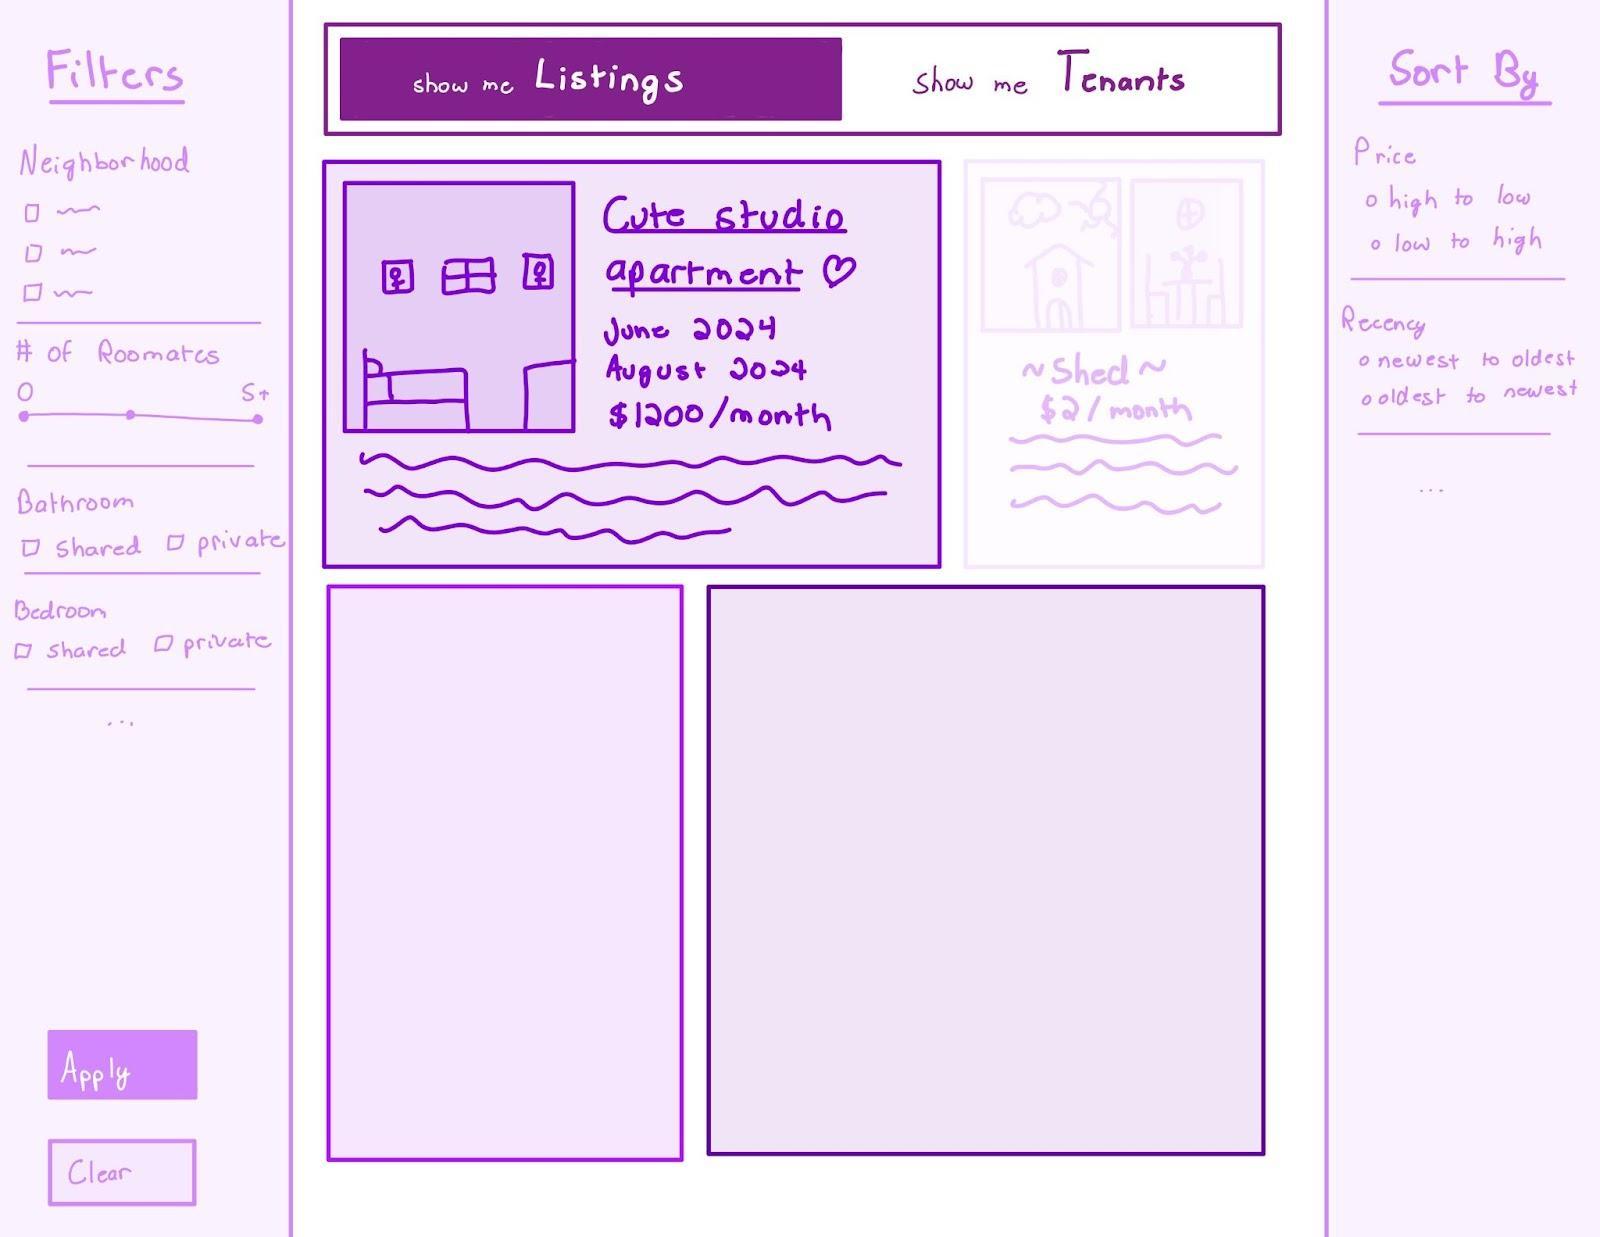 Filters
Neighborhood
# of Roomates
0 5+
Bathroom
shared private
Bedroom
shared private
...
Apply
Clear
show me Listings
Show me Tenants
Cute studio
apartment ♡
June 2024
August 2024
$1200/month
~Shed~
$2/month
Sort By
Price
high to low
low to high
Recency
newest to oldest
oldest to newest
...